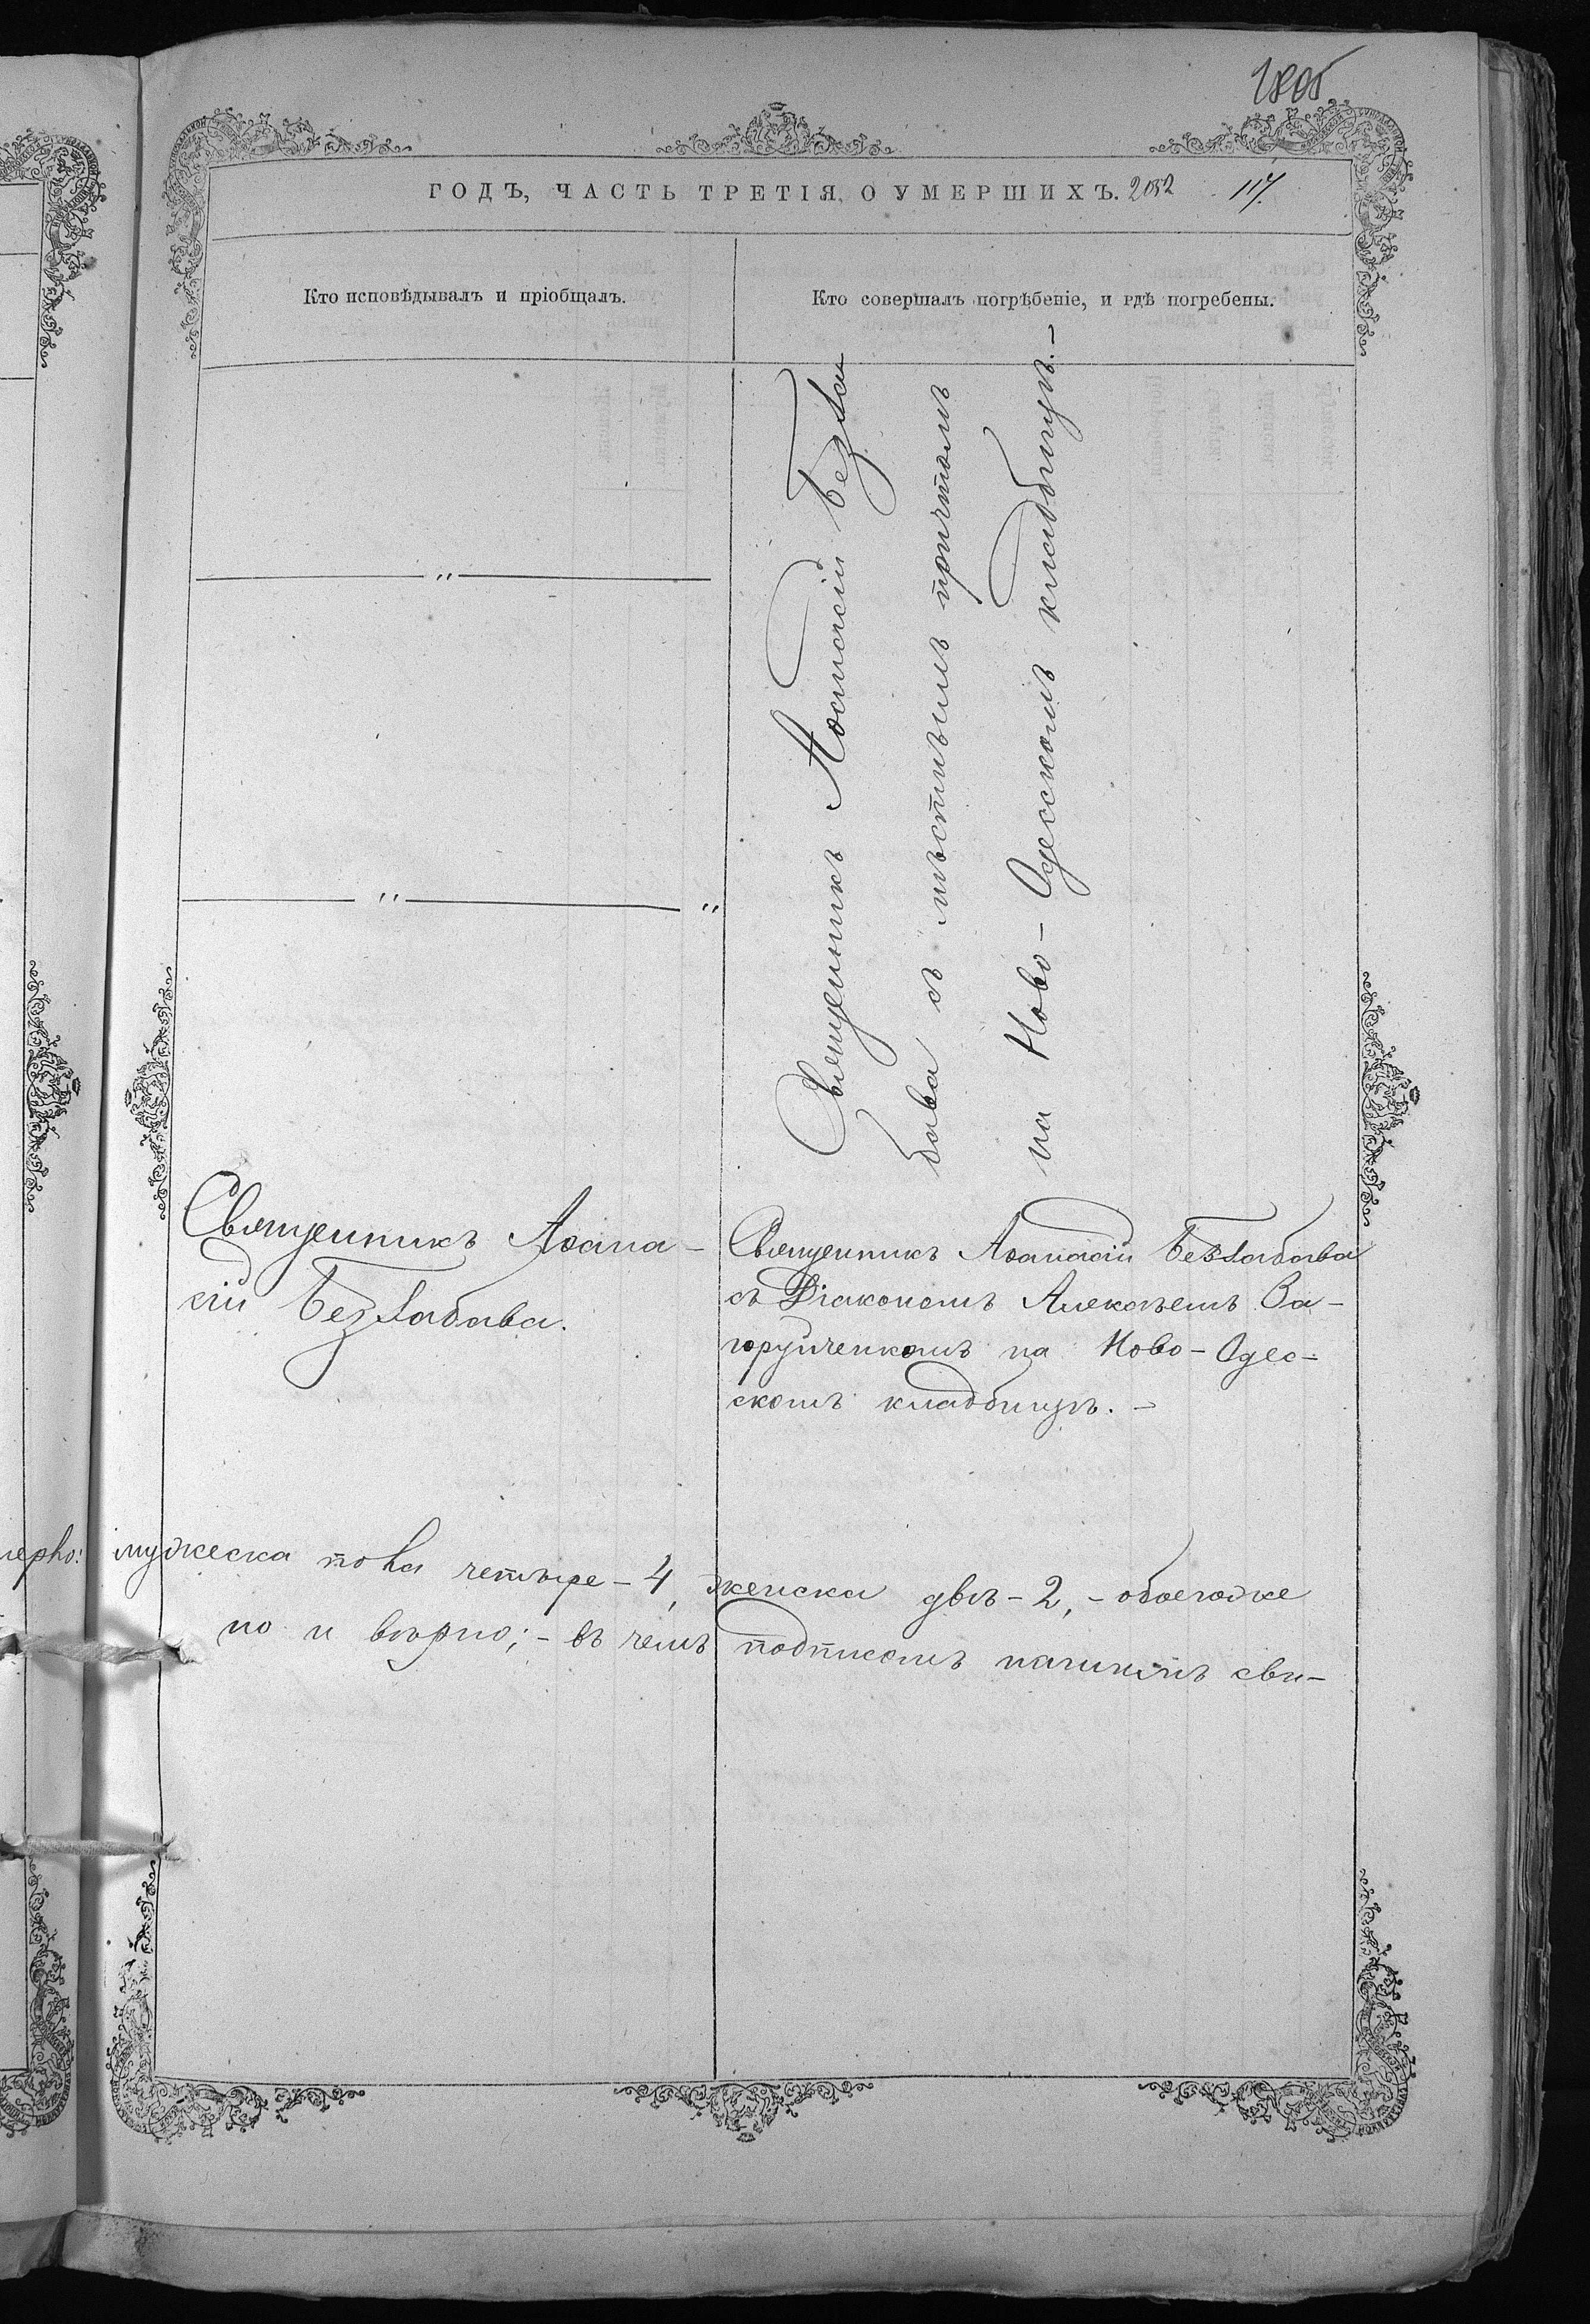 1805
ГОДЪ, ЧАСТЬ ТРЕТІЯ, О УМЕРШИХЪ. 2052 117.
Кто исповѣдывалъ и пріобщалъ.
Кто совершалъ погрѣбеніе, и гдѣ погребены.
Священникъ Аѳанасій Безза
бава съ мѣстнымъ причтомъ
на Ново-Одесскомъ кладбищѣ.-
Священникъ Аѳана-
сій Беззабава.
Священникъ Аѳанасій Беззабава
съ Діакономъ Алексѣемъ За-
горуйченкомъ на Ново-Одес-
скомъ кладбищѣ.-
мужеска пола четыре-4, женска двѣ-2,-обоего же
но и вѣрно;-въ чемъ подписомъ нашимъ сви-